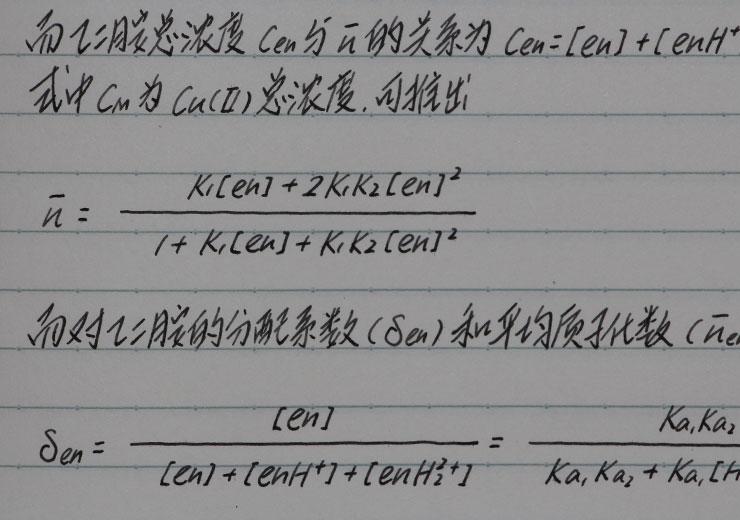 而乙二胺总浓度 Cen与 n̄ 的关系为 Cen=[en]+[enH⁺
式中 Cm 为 Cu(II) 总浓度,可推出
n̄ = (K₁[en]+2K₁K₂[en]²) / (1+K₁[en]+K₁K₂[en]²)
而对乙二胺的分配系数(δen)和平均质子化数(n̄en
δen = [en] / ([en]+[enH⁺]+[enH₂²⁺]) = Ka₁Ka₂ / (Ka₁Ka₂+Ka₁[H